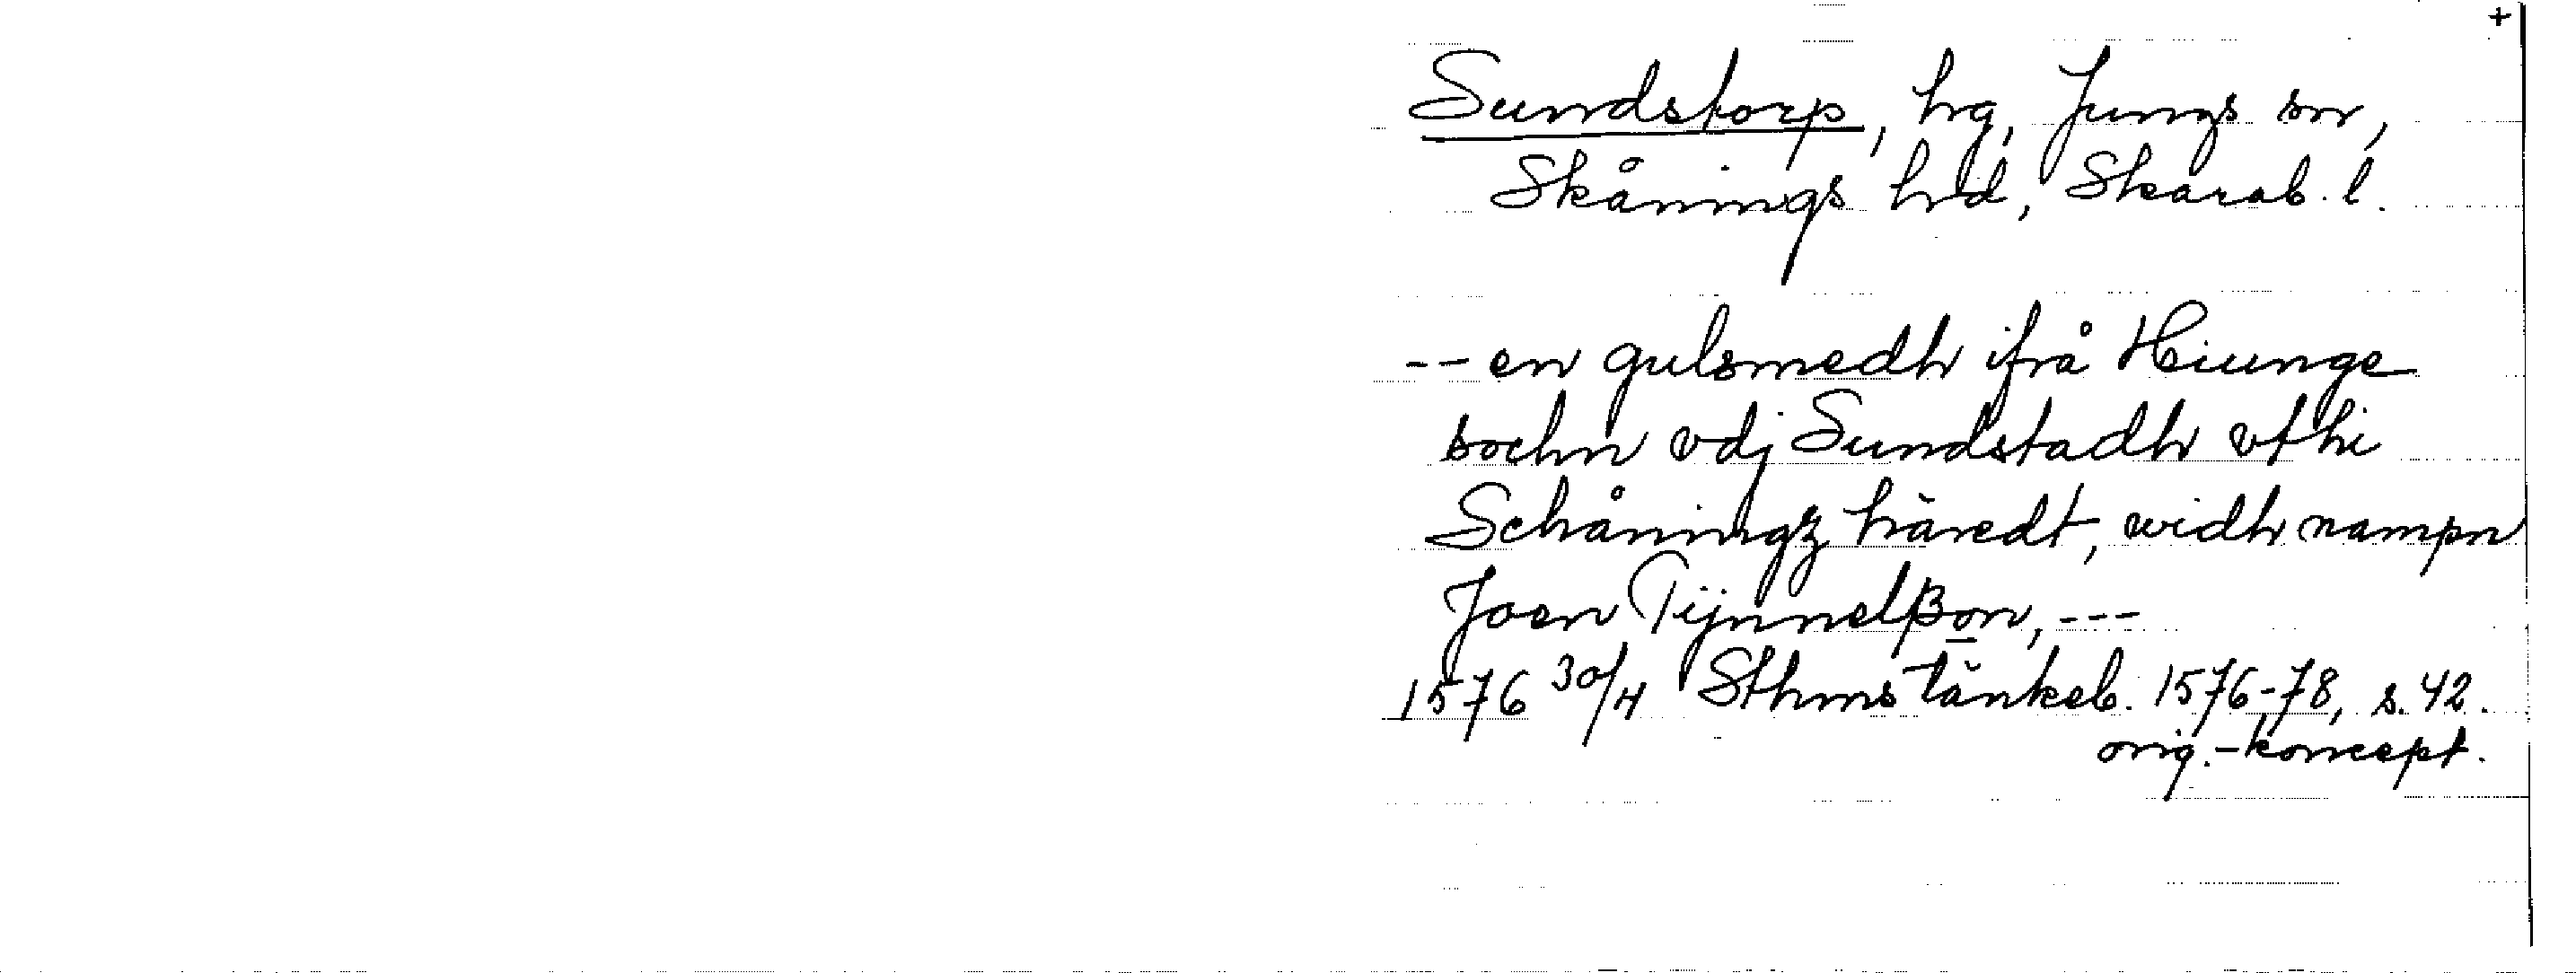 +
Sundstorp, hg, Jungs sn,
Skånings hd, Skarab. l.
-- en gulsmedh ifrå Hiunge
sochn vdj Sundstadh vthi
Schåningz häredt, widh nampn
Joen Tijnnelßon, ---
1576 30/4 Sthms tänkeb. 1576-78, s. 42.
orig.-koncept.